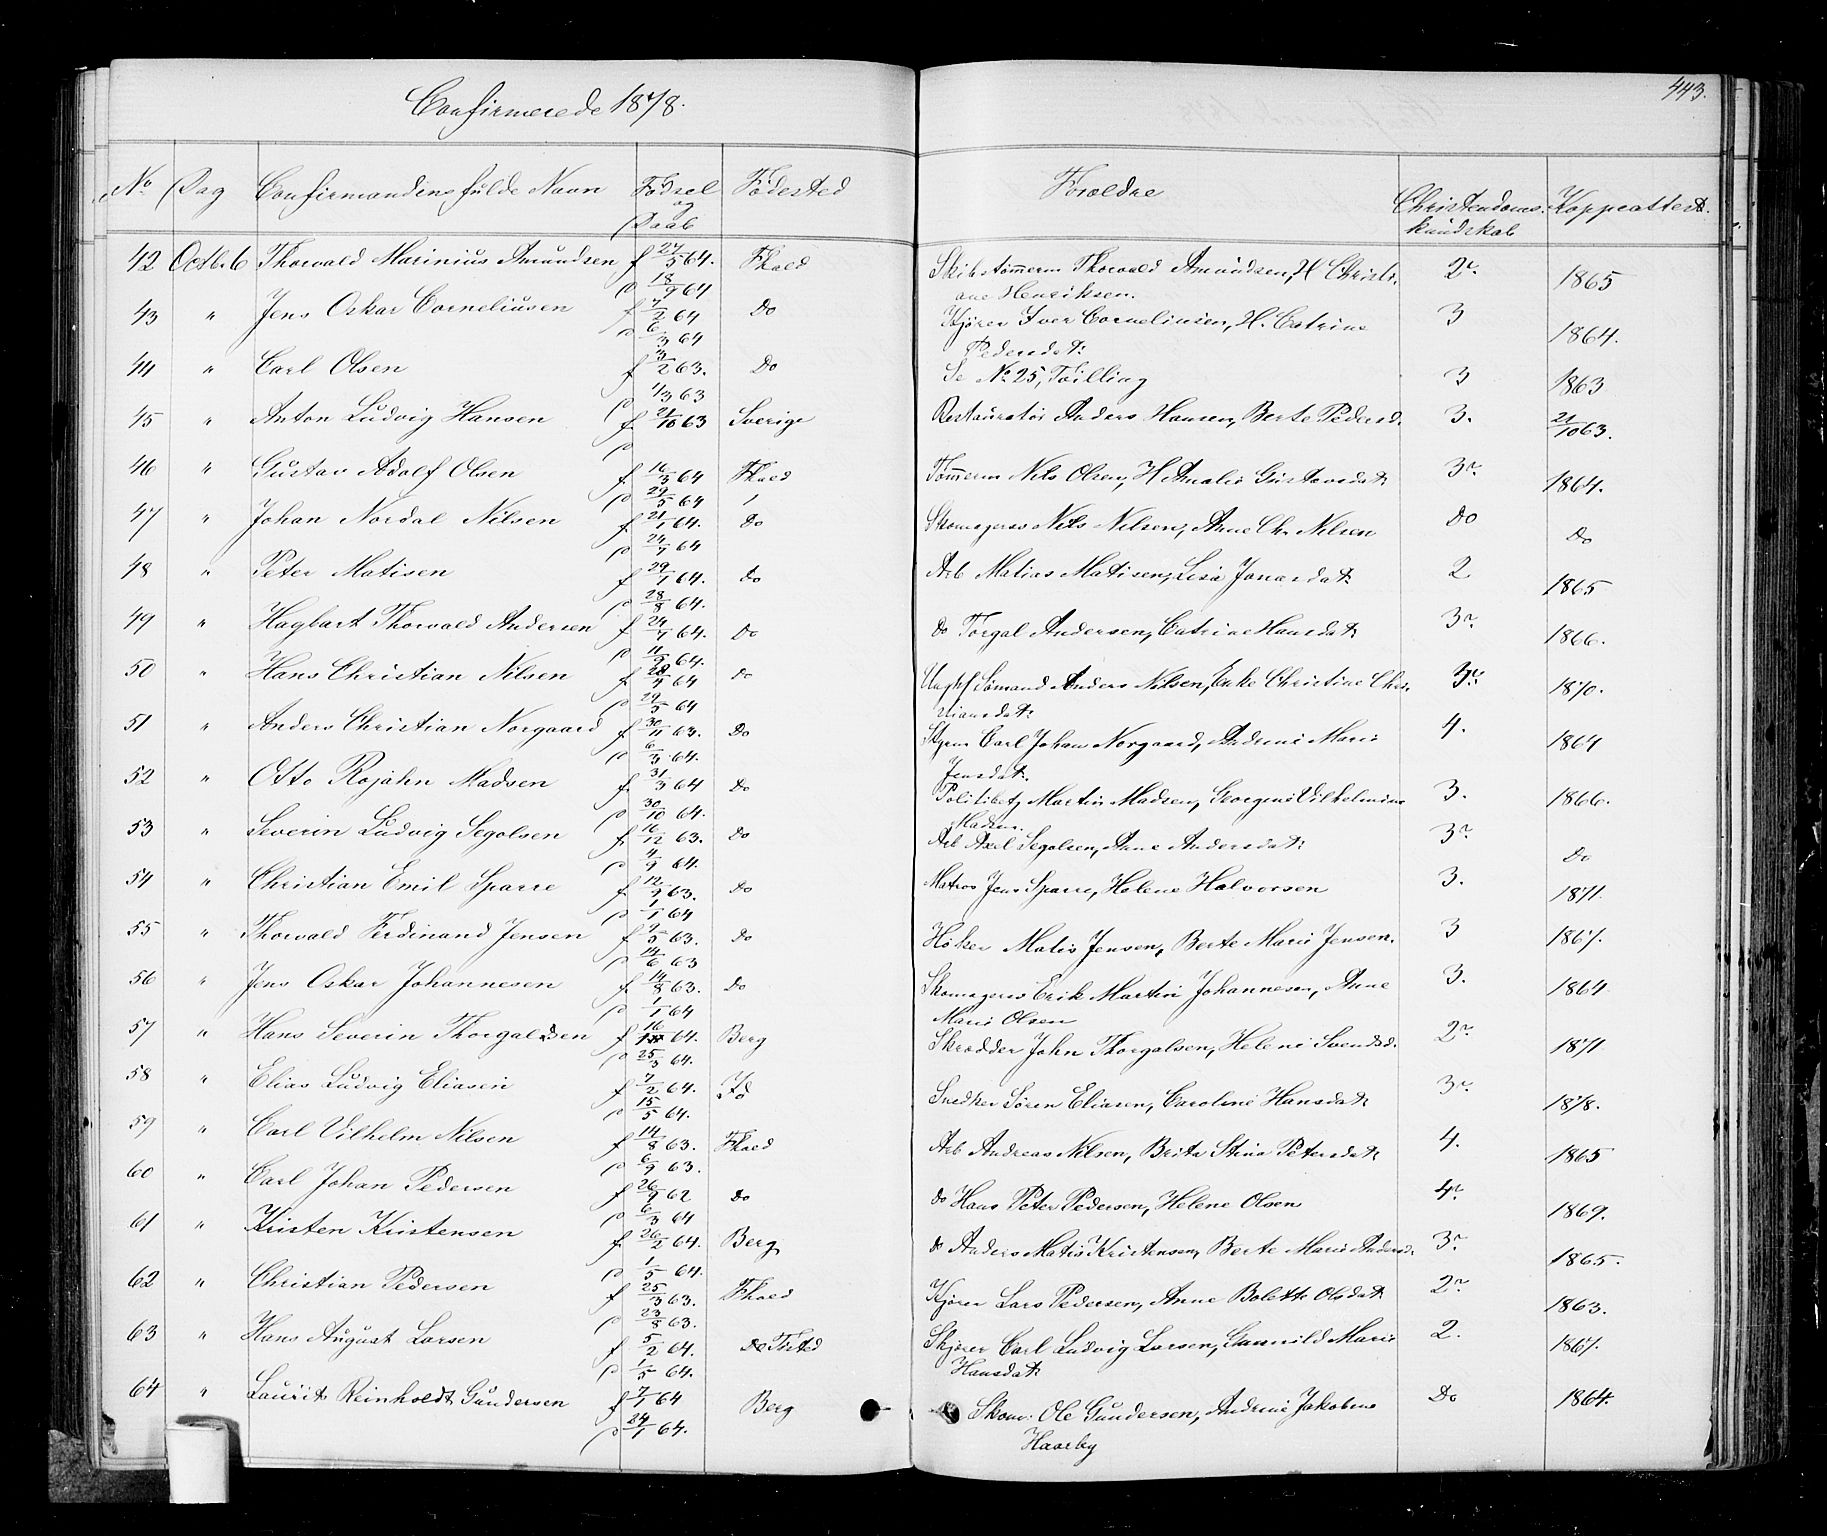 Confirmerede 1878.
443.
No Dag Confirmandens fulde Navn Fødsel og Daab Fødested Forældre Christendoms-kundskab Koppeattest.
42 Octb. 6 Thorvald Marinius Amundsen f 27/5 64. Fhald Skibstømmerm Thorvald Amundsen, H Christi- 2r 1865
D 18/9 64 ane Henriksen.
43 " Jens Oskar Corneliusen f 7/2 64 Do Kjører Iver Corneliusen, H. Catrine 3 1864.
D 6/3 64 Pedersdat.
44 " Carl Olsen f 3/2 63. Do Se No 25, Tvilling 3 1863
D 1/3 63
45 " Anton Ludvig Hansen f. 21/10 63 Sverige Restauratør Anders Hansen, Berte Pedersd. 3. 21/10 63.
D
46 " Gustav Adolf Olsen f. 16/3 64 Fhald Tømmerm Nils Olsen, H Amalie Gustavsdat. 3r 1864.
D 29/5 64
47 " Johan Nordal Nilsen f 21/1 64. Do Skomagersv Nils Nilsen, Anne Chr. Nilsen Do Do
D 24/4 64
48 " Peter Matisen f 29/1 64. Do Arb Matias Matisen, Lisa Jonasdat. 2 1865
D 28/8 64.
49 " Hagbart Thorvald Andersen f 24/4 64. Do Do Torgal Andersen, Catrine Hansdat. 3r 1866.
D 11/9 64.
50 " Hans Christian Nilsen f. 28/4 64 Do Ungkf Sømand Anders Nilsen, Enke Christine Chri- 3r 1870.
D 29/5 64 stiansdat.
51 " Anders Christian Norgaard f 30/11 63. Do Styrm Carl Johan Norgaard, Andrine Marie 4. 1864
D 6/3 64. Jensdat.
52 " Otto Rojahn Madsen f. 31/3 64 Do Politibet, Martin Madsen, Georgine Vilhelmine 3. 1866.
D 30/10 64. Madsen.
53 " Severin Ludvig Segolsen f. 16/12 63. Do Arb Axel Segolsen, Anne Andersdat. 3r Do
D 4/9 64.
54 " Christian Emil Sparre f. 12/9 63. Do Matros Jens Sparre, Helene Halvorsen 3. 1871.
D 1/1 64
55 " Thorvald Ferdinand Jensen f 9/5 63. Do Høker Matis Jensen, Berte Marie Jensen. 3 1867.
D 14/6 63
56 " Jens Oskar Johannesen f. 14/8 63. Do Skomagersv Erik Martin Johannesen, Anne 3. 1864
D 1/1 64 Marie Olsen
57 " Hans Severin Thorgaldsen f 16/ 64. Berg Skrædder John Thorgalsen, Helene Svendsd. 2r 1871
D 25/5 64.
58 " Elias Ludvig Eliasen f 7/2 64. Id Snedker Søren Eliasen, Caroline Hansdat. 3r 1878.
D 15/5 64.
59 " Carl Vilhelm Nilsen f 14/8 63. Fhald Arb Andreas Nilsen, Brita Stina Petersdat. 4. 1865
D 6/9 63.
60 " Carl Johan Pedersen f 26/9 62 Do Do Hans Peter Pedersen, Helene Olsen 4r 1869.
D 6/3 64
61 " Kristen Kristensen f. 26/2 64. Berg Do Anders Matis Kristensen, Berte Marie Andersd. 3r 1865.
D 1/5 64.
62 " Christian Pedersen f 25/3 63. Fhald Kjører Lars Pedersen, Anne Bolette Olsdat. 2r 1863.
D 23/8 63.
63 " Hans August Larsen f 5/2 64. Do Tisted Skjører Carl Ludvig Larsen, Gunnild Marie 2. 1867.
D 1/5 64. Hansdat.
64 " Laurits Reinholdt Gundersen f 7/1 64 Berg Skom. Ole Gundersen, Andrine Jakobine Do 1864.
D 24/1 64. Haarby